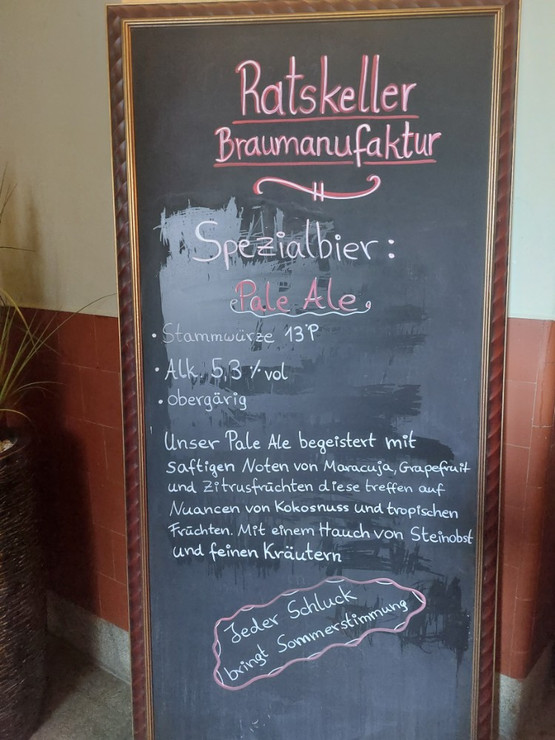 Ratskeller
Braumanufaktur
Spezialbier:
Pale Ale
• Stammwürze 13°P
• Alk. 5,3 % vol
• obergärig
Unser Pale Ale begeistert mit
saftigen Noten von Maracuja, Grapefruit
und Zitrusfrüchten diese treffen auf
Nuancen von Kokosnuss und tropischen
Früchten. Mit einem Hauch von Steinobst
und feinen Kräutern
Jeder Schluck
bringt Sommerstimmung